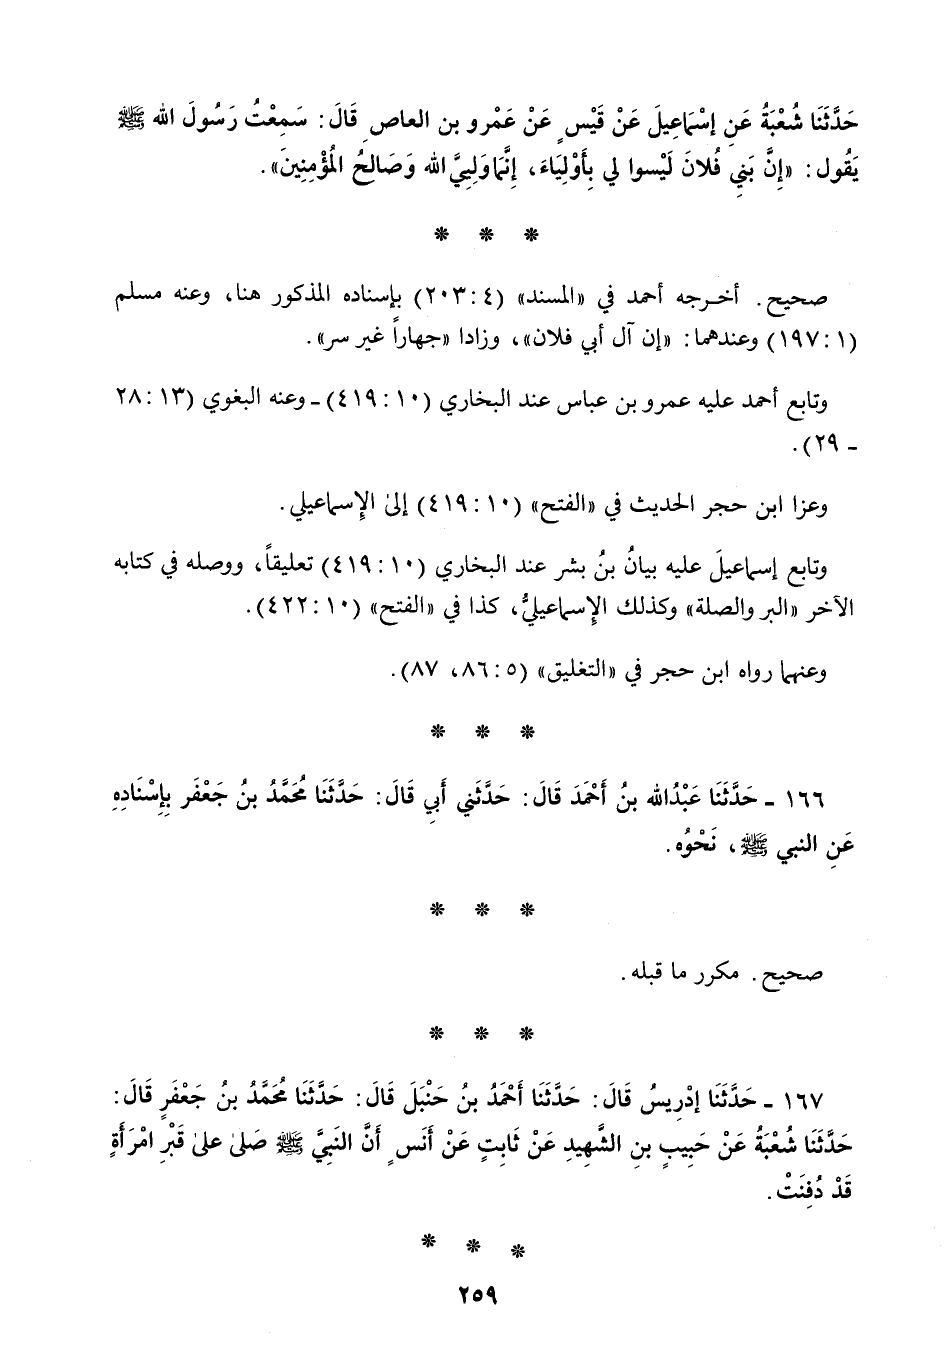 حَدَّثَنَا شُعْبَةُ عَنِ إسْمَاعِيلَ عَنْ قَيْسٍ عَنْ عَمْرو بن العاصِ قَالَ: سَمِعْتُ رَسُولَ الله ﷺ
يَقُول: «إنَّ بَنِي فُلانَ لَيْسوا لي بِأَوْلِيَاءَ، إِنَّمَا وَلِيِيَّ الله وَصَالِحُ المُؤْمِنِينَ».
* * *
صحيح. أخرجه أحمد في «المسند» (٤:٢٠٣) بإسناده المذكور هنا، وعنه مسلم
(١:١٩٧) وعندهما: «إن آل أبي فلان»، وزادا «جهاراً غير سر».
وتابع أحمد عليه عمرو بن عباس عند البخاري (١٠:٤١٩) ـ وعنه البغوي (١٣:٢٨
ـ ٢٩).
وعزا ابن حجر الحديث في «الفتح» (١٠:٤١٩) إلىٰ الإِسماعيلي.
وتابع إسماعيلَ عليه بيانُ بنُ بشر عند البخاري (١٠:٤١٩) تعليقاً، ووصله في كتابه
الآخر «البر والصلة» وكذلك الإِسماعيليُّ، كذا في «الفتح» (١٠:٤٢٢).
وعنهما رواه ابن حجر في «التغليق» (٥:٨٦، ٨٧).
* * *
١٦٦ ـ حَدَّثَنَا عَبْدُالله بنُ أَحْمَدَ قَالَ: حَدَّثَنِي أَبِي قَالَ: حَدَّثَنَا مُحَمَّدُ بنُ جَعْفَر بِإِسْنَادِهِ
عَنِ النبي ﷺ، نَحْوُه.
* * *
صحيح. مكرر ما قبله.
* * *
١٦٧ ـ حَدَّثَنَا إدْرِيسُ قَالَ: حَدَّثَنَا أَحْمَدُ بن حَنْبَلَ قَالَ: حَدَّثَنَا مُحَمَّدُ بنُ جَعْفَرٍ قَالَ:
حَدَّثَنَا شُعْبَةُ عَنْ حَبِيبٍ بنِ الشَّهِيدِ عَنْ ثَابِتٍ عَنْ أَنَسٍ أَنَّ النَبِيَّ ﷺ صَلىٰ علىٰ قَبْرِ امْرَأَةٍ
قَدْ دُفِنَتْ.
* * *
٢٥٩